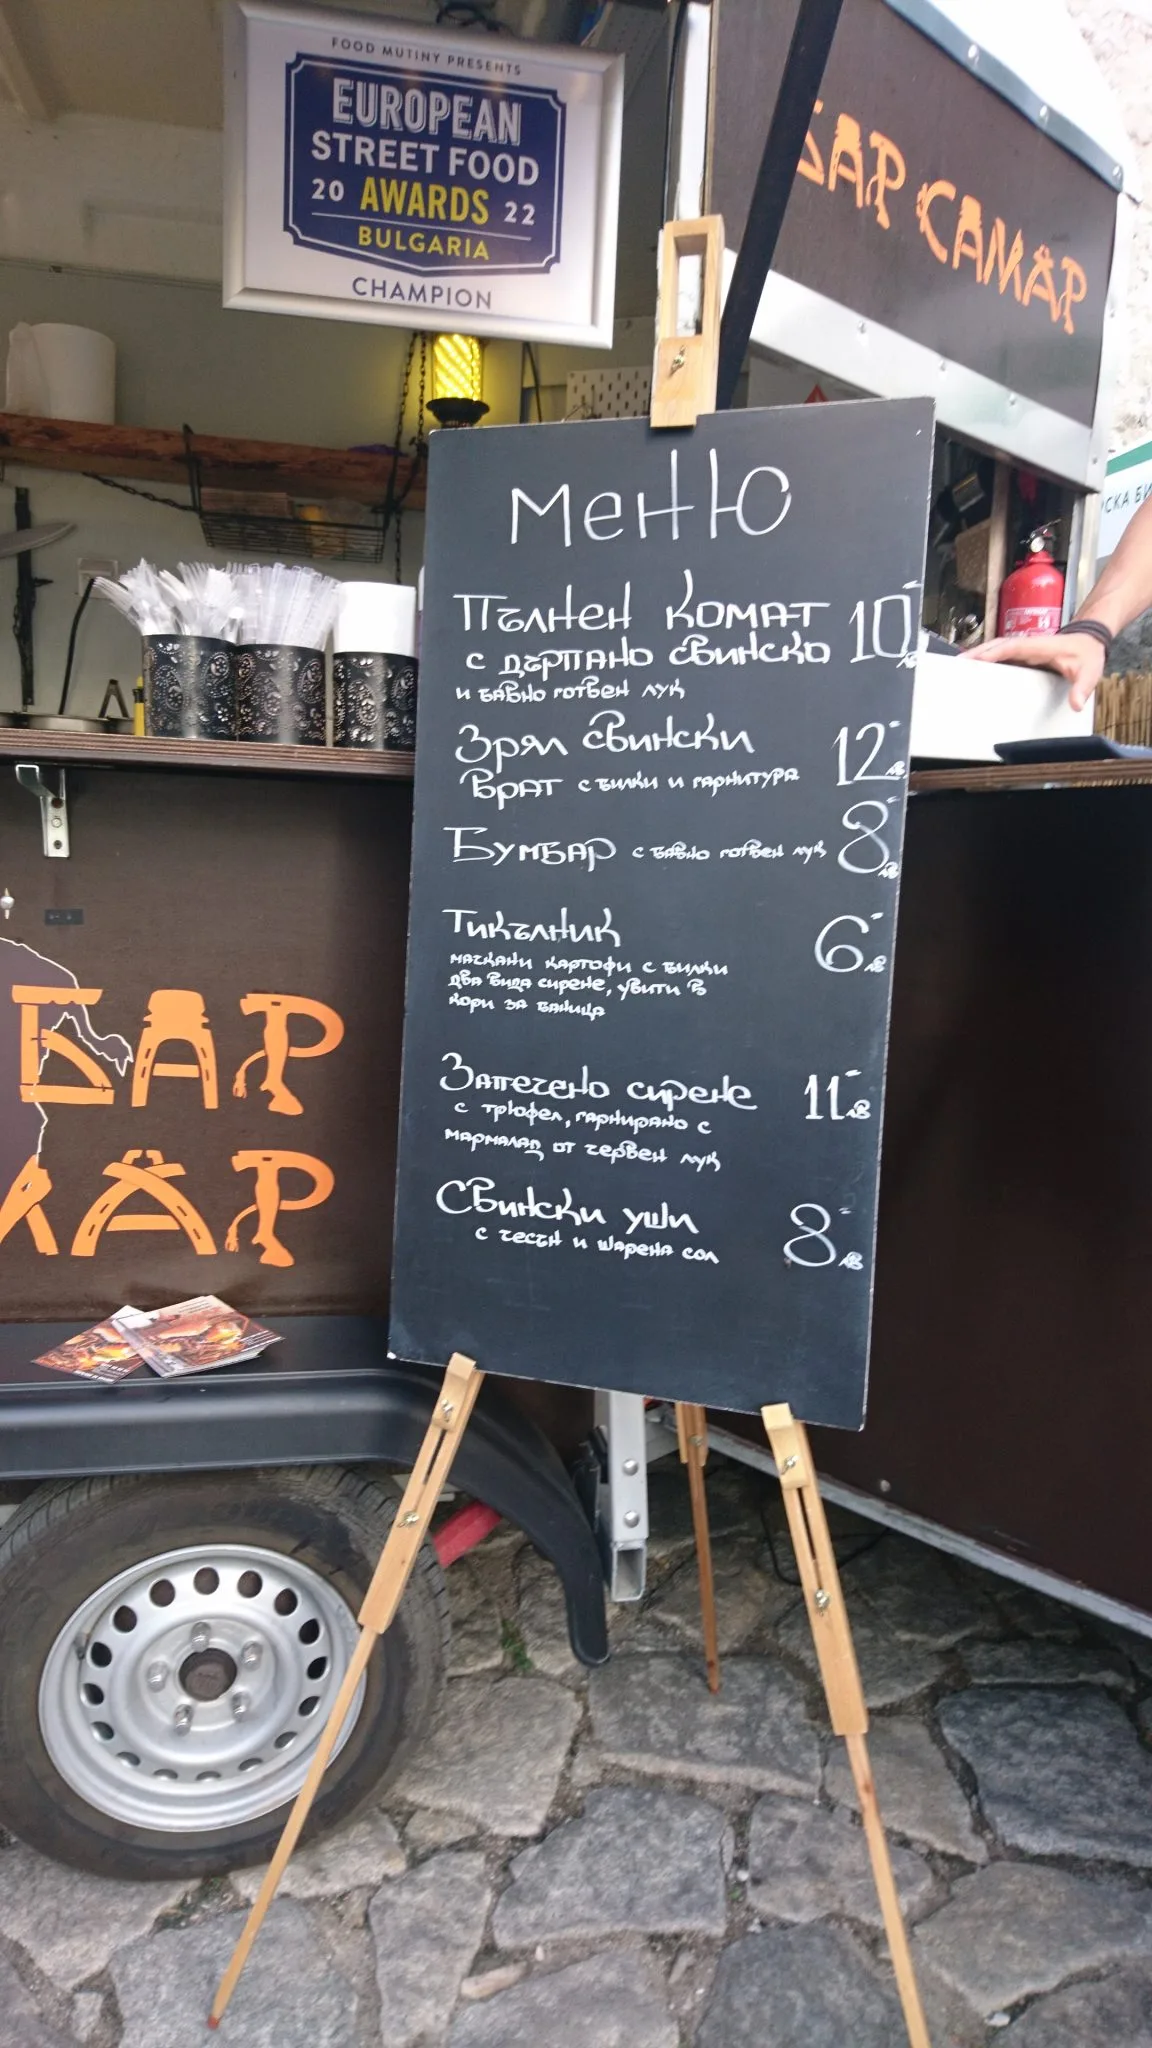 FOOD MUTINY PRESENTS
EUROPEAN
STREET FOOD
20 AWARDS 22
BULGARIA
CHAMPION
БАР САМАР
СКА БИ
Меню
Пълнен комат 10лв
с дърпано свинско
и бавно готвен лук
Зрял свински
врат с билки и гарнитура 12лв
Бумбар с бавно готвен лук 8лв
Тикълник 6лв
мачкани картофи с билки
два вида сирене, увити в
кори за баница
Запечено сирене 11лв
с трюфел, гарнирано с
мармалад от червен лук
Свински уши 8лв
с чесън и шарена сол
БАР
МАР